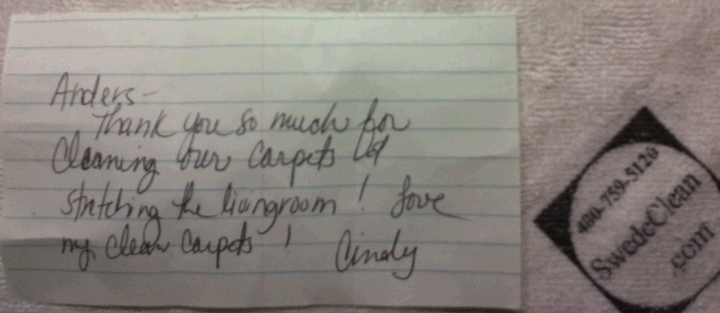 Anders-
Thank you so much for
Cleaning our Carpets &
stretching the livingroom! Love
my clean carpets! Cindy
480-759-5120
SwedeClean
.com